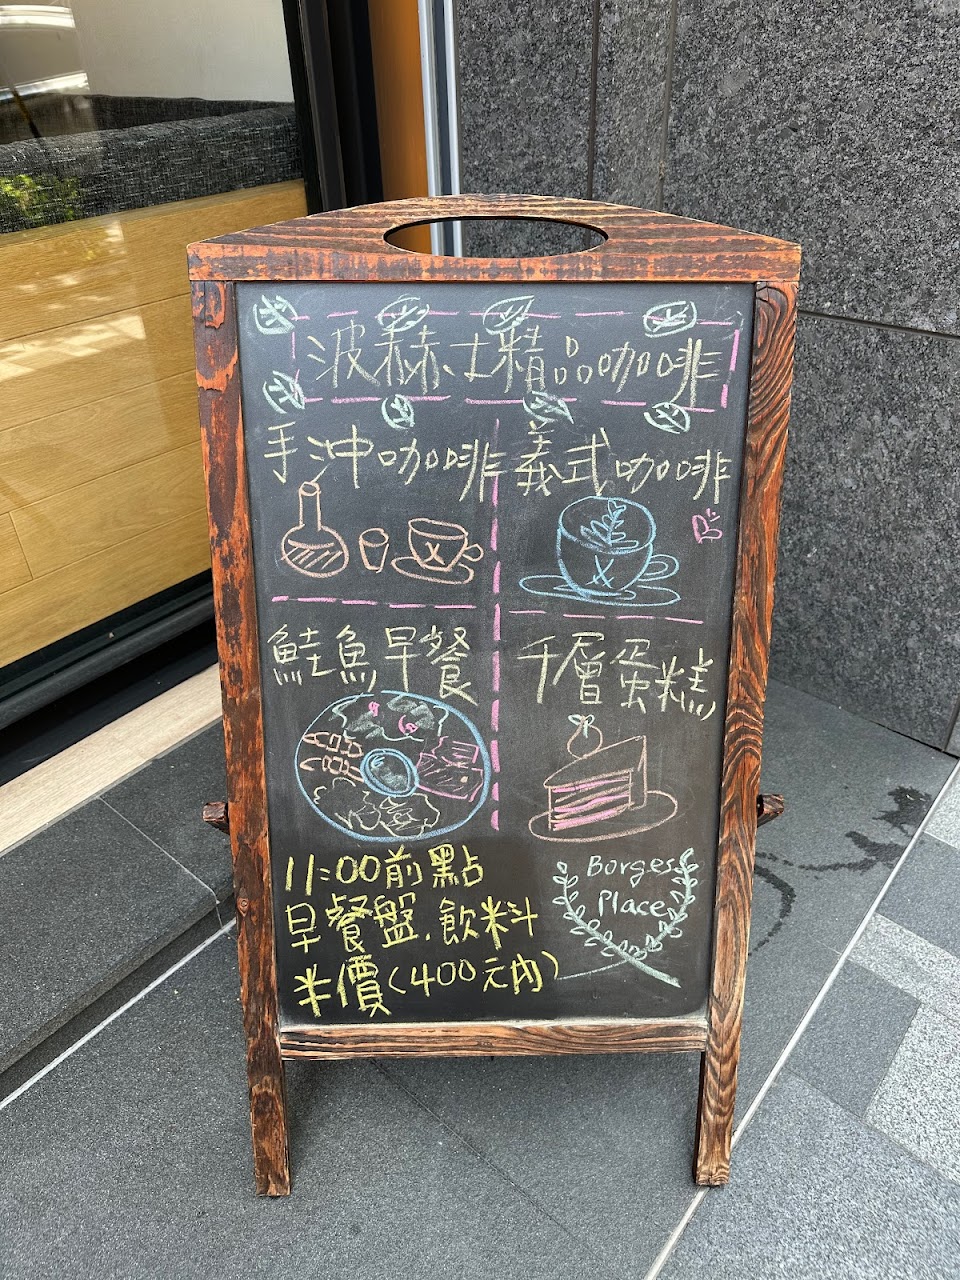 波赫士精品咖啡
手沖咖啡
義式咖啡
鮭魚早餐
千層蛋糕
11:00前點
早餐盤.飲料
半價(400元內)
Borges
Place